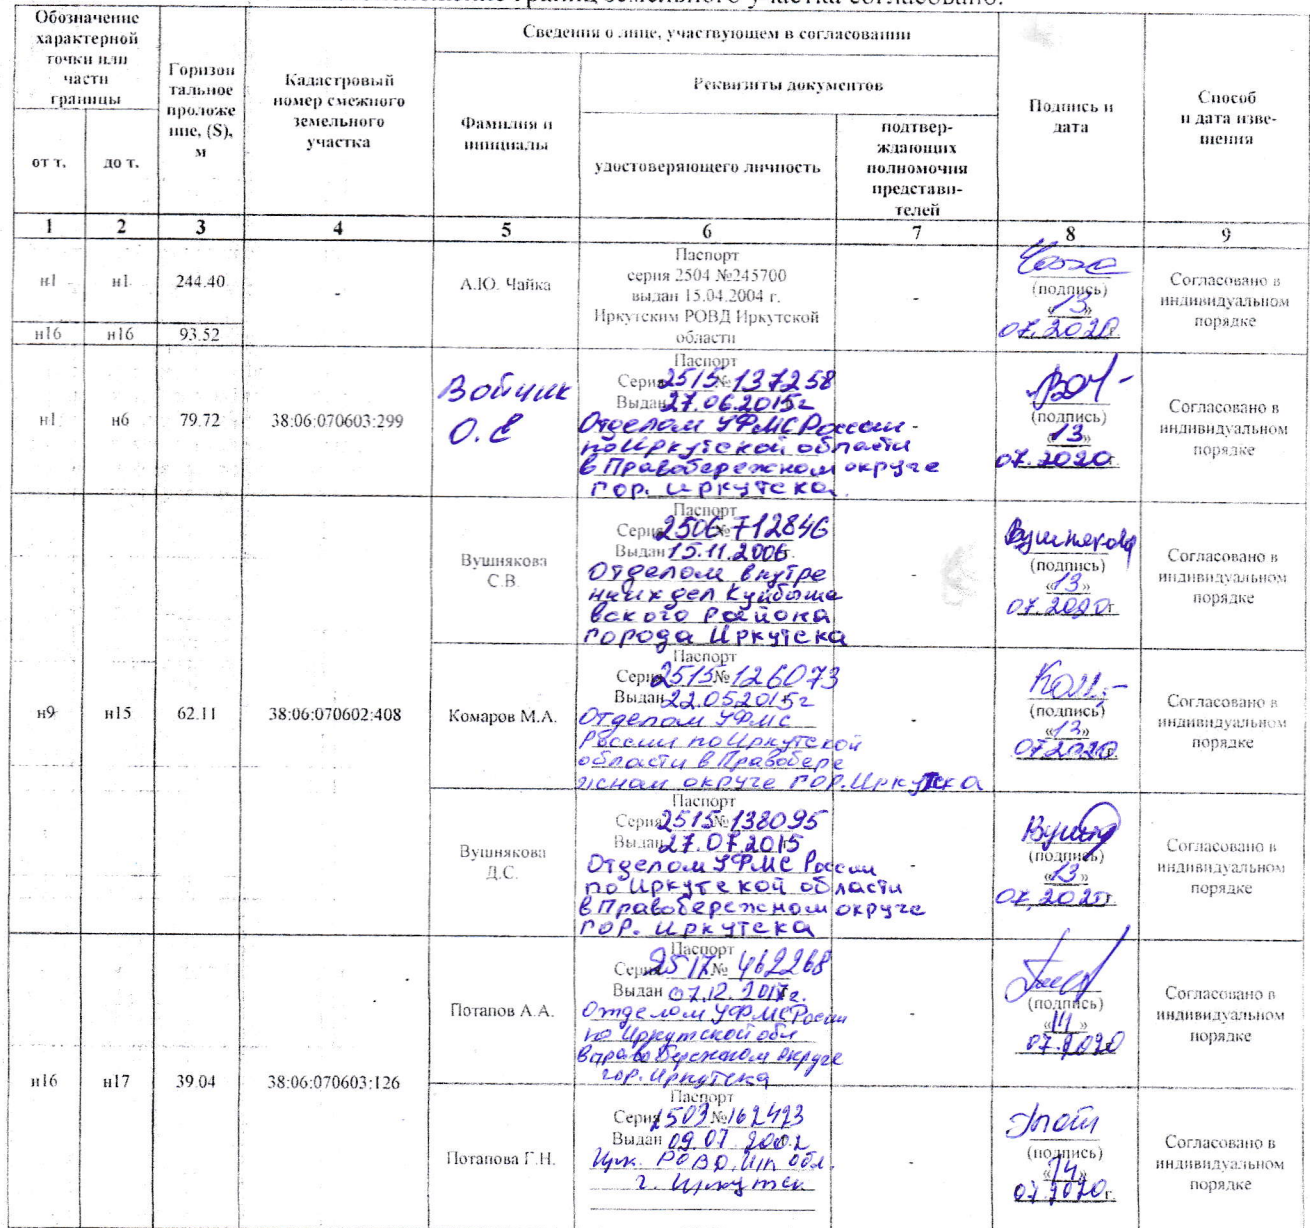 границ земельного участка согласовано.
Обозначение характерной точки или части границы
Горизон тальное проложе ние, (S), м
Кадастровый номер смежного земельного участка
Сведения о лице, участвующем в согласовании
Подпись и дата
Способ и дата изве- щения
Фамилия и инициалы
Реквизиты документов
от т.
до т.
удостоверяющего личность
подтвер- ждающих полномочия представи- телей
1 2 3 4 5 6 7 8 9
н1 н1 244.40
-
А.Ю. Чайка
Паспорт
серия 2504 №245700
выдан 15.04.2004 г.
Иркутским РОВД Иркутской
области
-
(подпись)
«13»
07.2020г.
Согласовано в
индивидуальном
порядке
н16 н16 93.52
н1 н6 79.72 38:06:070603:299
Войчик
О.Е
Паспорт
Серия 2515 № 137258
Выдан 27.06.2015г
Отделом УФМС России
по Иркутской области
в Правобережном округе
гор. Иркутска
(подпись)
«13»
07.2020г.
Согласовано в
индивидуальном
порядке
н9 н15 62.11 38:06:070602:408
Вушнякова
С.В.
Паспорт
Серия 2506 № 712846
Выдан 15.11.2006г.
Отделом внутре
нних дел Куйбыше
вского района
города Иркутска
-
Вушнякова
(подпись)
«13»
07.2020г.
Согласовано в
индивидуальном
порядке
Комаров М.А.
Паспорт
Серия 2515 № 126073
Выдан 22.05.2015г
Отделом УФМС
России по Иркутской
области в Правобере
жном округе гор. Иркутска
-
(подпись)
«13»
07.2020г.
Согласовано в
индивидуальном
порядке
Вушнякова
Д.С.
Паспорт
Серия 2515 № 138095
Выдан 27.07.2015
Отделом УФМС России
по Иркутской области
в Правобережном округе
гор. Иркутска
-
(подпись)
«13»
07.2020г.
Согласовано в
индивидуальном
порядке
н16 н17 39.04 38:06:070603:126
Потапов А.А.
Паспорт
Серия 2517 № 462268
Выдан 07.12.2017г.
Отделом УФМС России
по Иркутской обл
в Правобережном округе
гор. Иркутска
-
(подпись)
«14»
07.2020
Согласовано в
индивидуальном
порядке
Потапова Г.Н.
Паспорт
Серия 2503 № 162493
Выдан 09.07.2002
Ирк. РОВД, Ирк обл.
г. Иркутск
-
(подпись)
«14»
07.2020г.
Согласовано в
индивидуальном
порядке